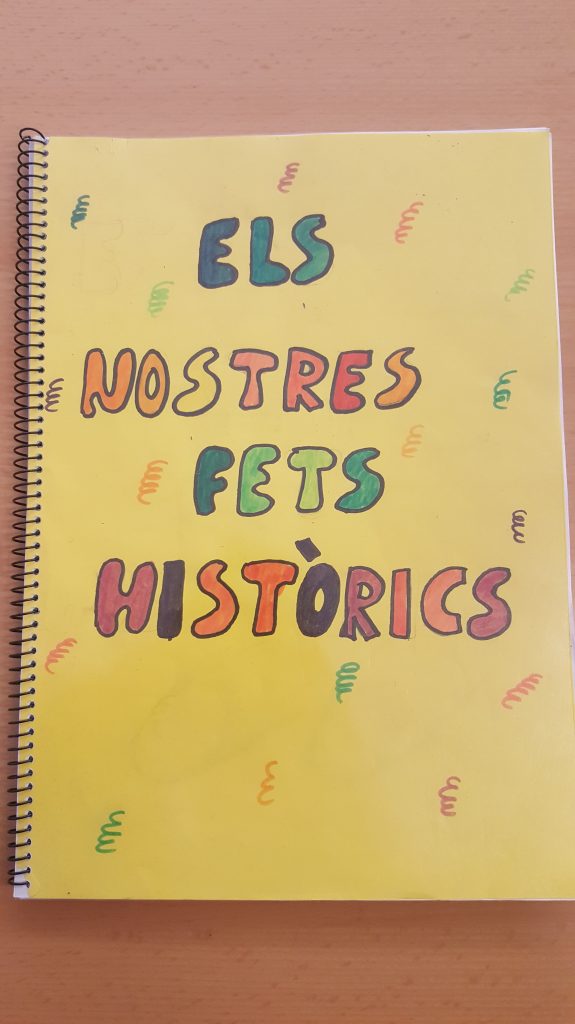 ELS
NOSTRES
FETS
HISTÒRICS